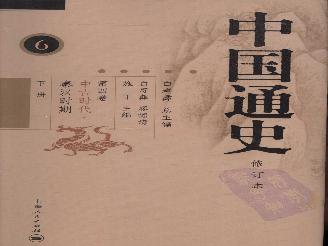 中国通史
修订本
白寿彝 总主编
白寿彝 廖德清
施丁 主编
第四卷
中古时代
秦汉时期
下册
6
上海人民出版社